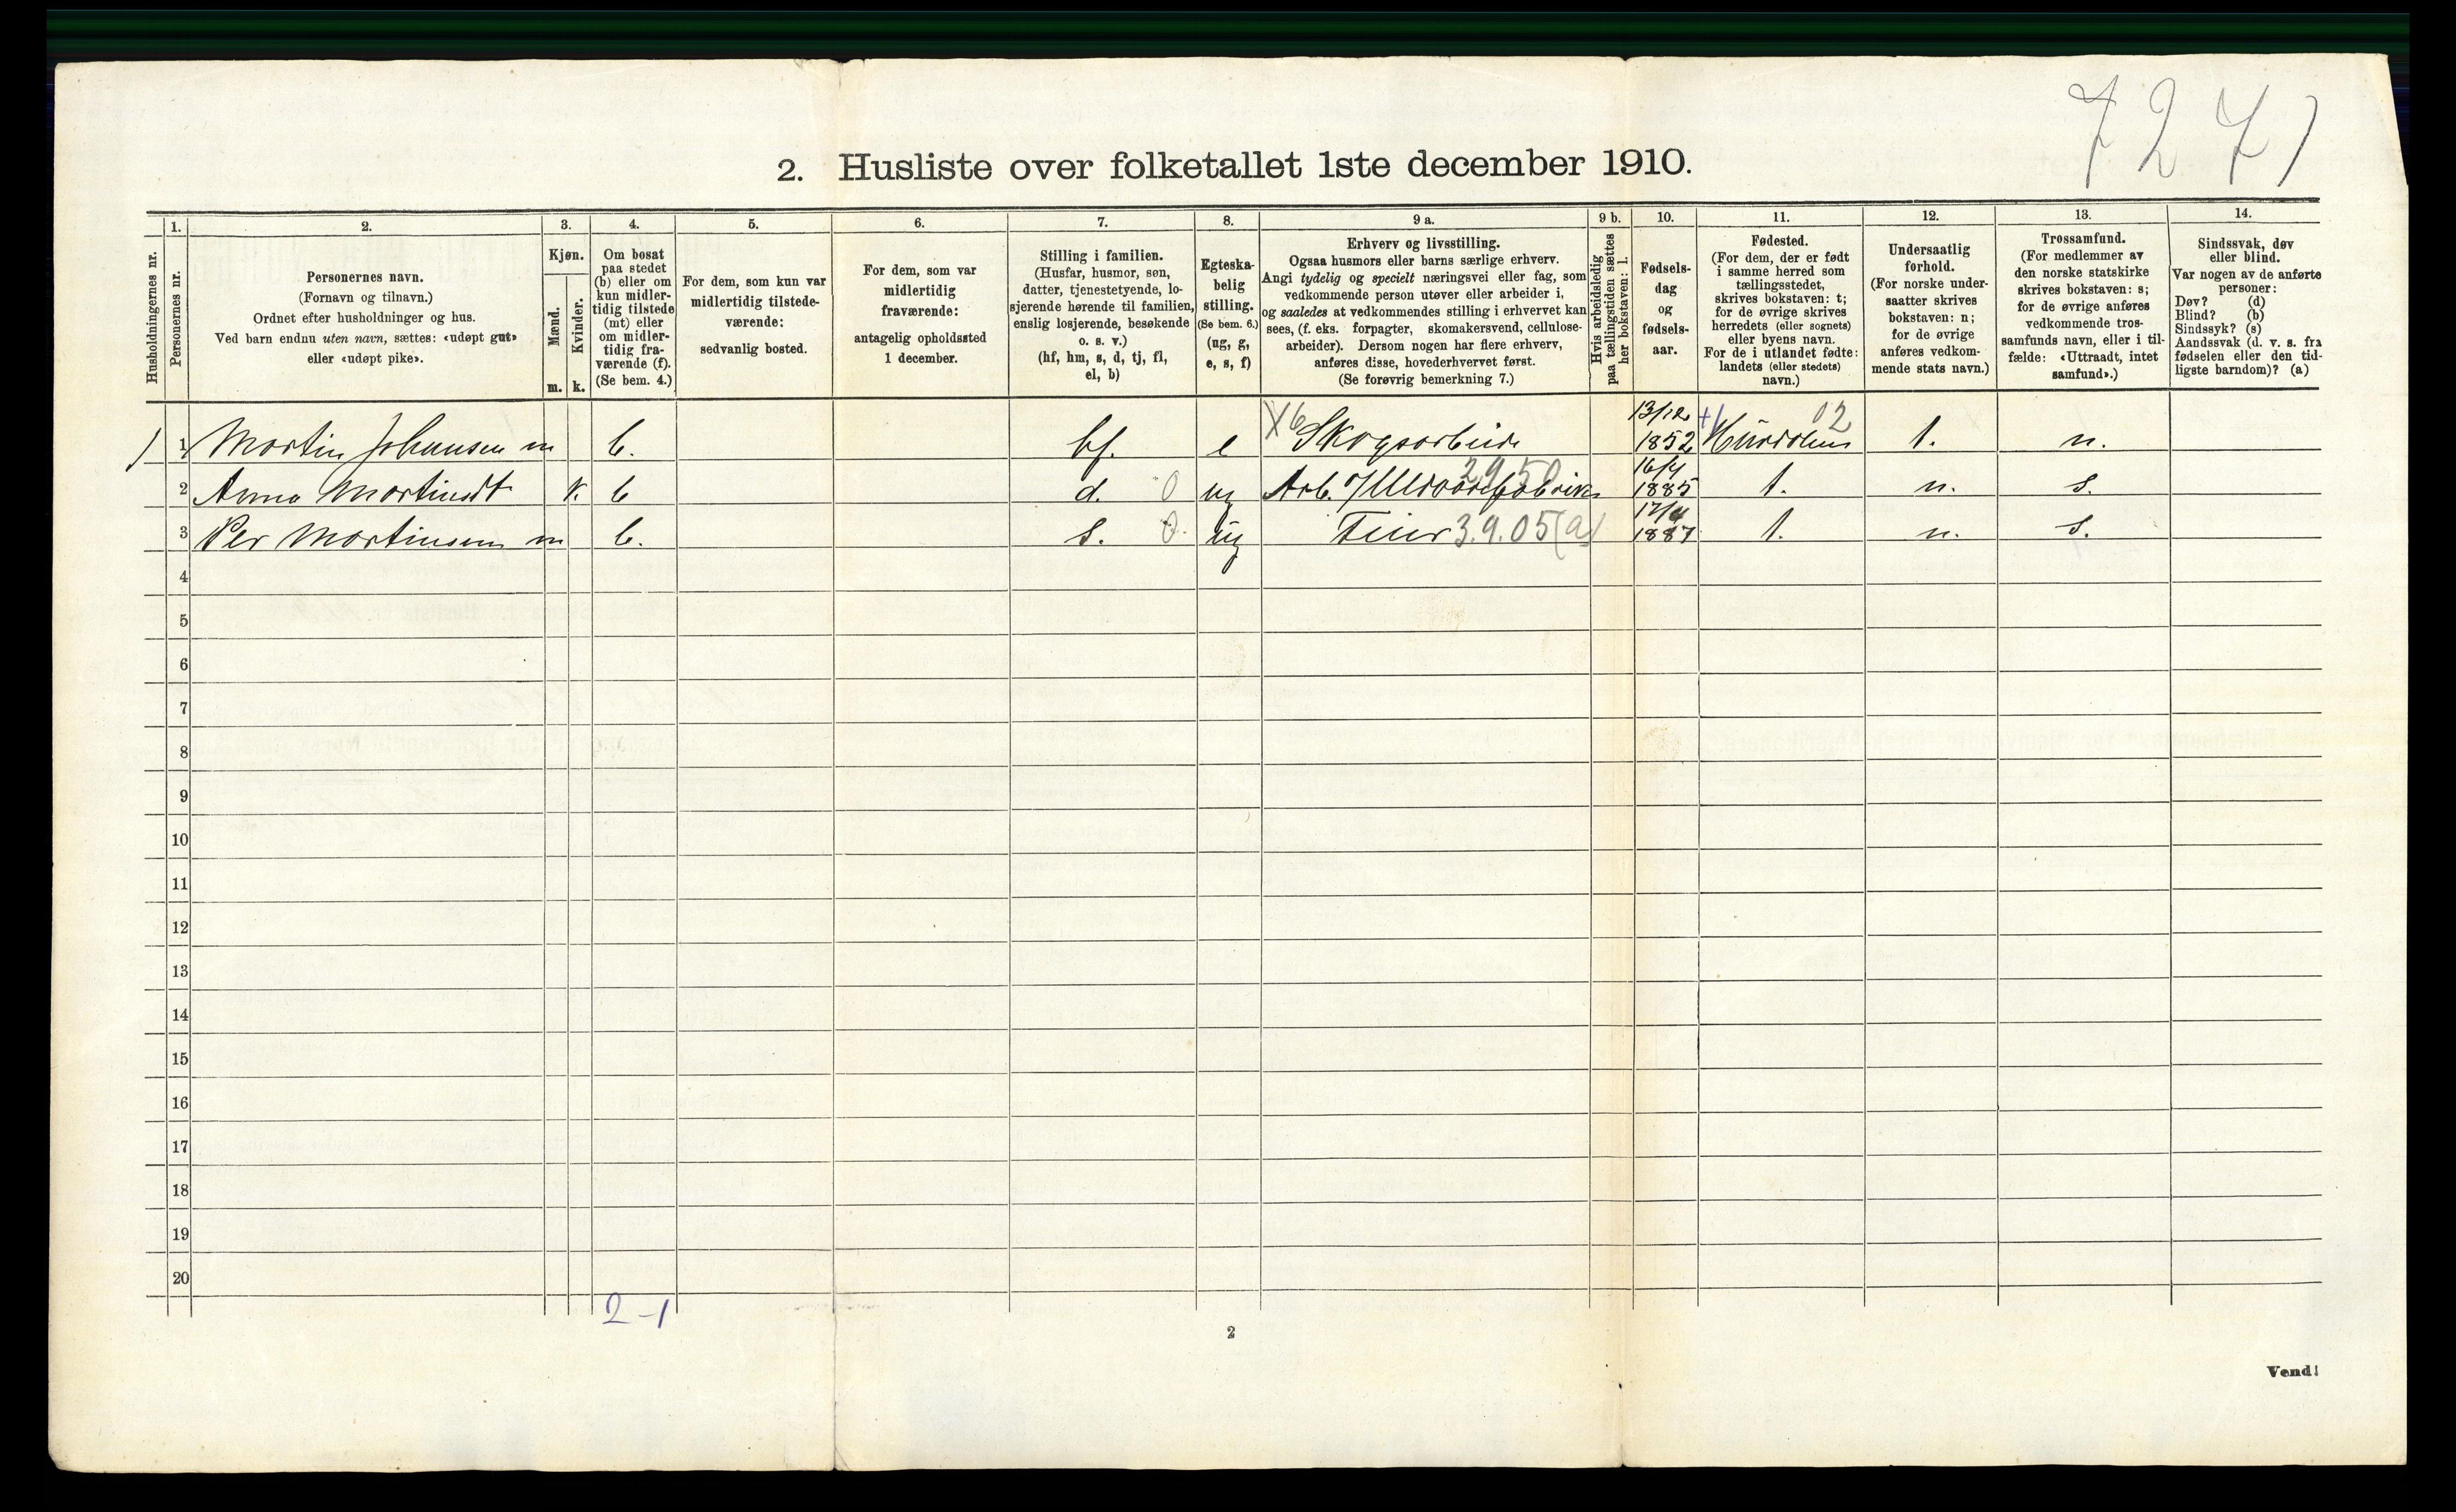 7241
2. Husliste over folketallet 1ste december 1910.
Husholdningernes nr.
1.
Personernes nr.
2.
Personernes navn.
(Fornavn og tilnavn.)
Ordnet efter husholdninger og hus.
Ved barn endnu uten navn, sættes: «udøpt gut»
eller «udøpt pike».
3.
Kjøn.
Mænd.
Kvinder.
m. k.
4.
Om bosat
paa stedet
(b) eller om
kun midler-
tidig tilstede
(mt) eller
om midler-
tidig fra-
værende (f).
(Se bem. 4.)
5.
For dem, som kun var
midlertidig tilstede-
værende:
sedvanlig bosted.
6.
For dem, som var
midlertidig
fraværende:
antagelig opholdssted
1 december.
7.
Stilling i familien.
(Husfar, husmor, søn,
datter, tjenestetyende, lo-
sjerende hørende til familien,
enslig losjerende, besøkende
o. s. v.)
(hf, hm, s, d, tj, fl,
el, b)
8.
Egteska-
belig
stilling.
(Se bem. 6.)
(ug, g,
e, s, f)
9 a.
Erhverv og livsstilling.
Ogsaa husmors eller barns særlige erhverv.
Angi tydelig og specielt næringsvei eller fag, som
vedkommende person utøver eller arbeider i,
og saaledes at vedkommendes stilling i erhvervet kan
sees, (f. eks. forpagter, skomakersvend, cellulose-
arbeider). Dersom nogen har flere erhverv,
anføres disse, hovederhvervet først.
(Se forøvrig bemerkning 7.)
9 b.
Hvis arbeidsledig
paa tællingstiden sættes
her bokstaven: l.
10.
Fødsels-
dag
og
fødsels-
aar.
11.
Fødested.
(For dem, der er født
i samme herred som
tællingsstedet,
skrives bokstaven: t;
for de øvrige skrives
herredets (eller sognets)
eller byens navn.
For de i utlandet fødte:
landets (eller stedets)
navn.)
12.
Undersaatlig
forhold.
(For norske under-
saatter skrives
bokstaven: n;
for de øvrige
anføres vedkom-
mende stats navn.)
13.
Trossamfund.
(For medlemmer av
den norske statskirke
skrives bokstaven: s;
for de øvrige anføres
vedkommende tros-
samfunds navn, eller i til-
fælde: «Uttraadt, intet
samfund».)
14.
Sindssvak, døv
eller blind.
Var nogen av de anførte
personer:
Døv? (d)
Blind? (b)
Sindssyk? (s)
Aandssvak (d. v. s. fra
fødselen eller den tid-
ligste barndom)? (a)
13/12 02
1 Martin Johansen m b. hf. e X6 Skogsarbeide 1852 Hurdalen t. n.
29 50 16/4
2 Anna Martinsdt k. b d. 0 ug Arb. i/Uldvarefabrik 1885 t. n. s.
17/4
3 Per Martinsen m b. s. 0. ug Feier 3.9.05(a) 1887 t. n. s.
4
5
6
7
8
9
10
11
12
13
14
15
16
17
18
19
20
2-1
2
Vend!